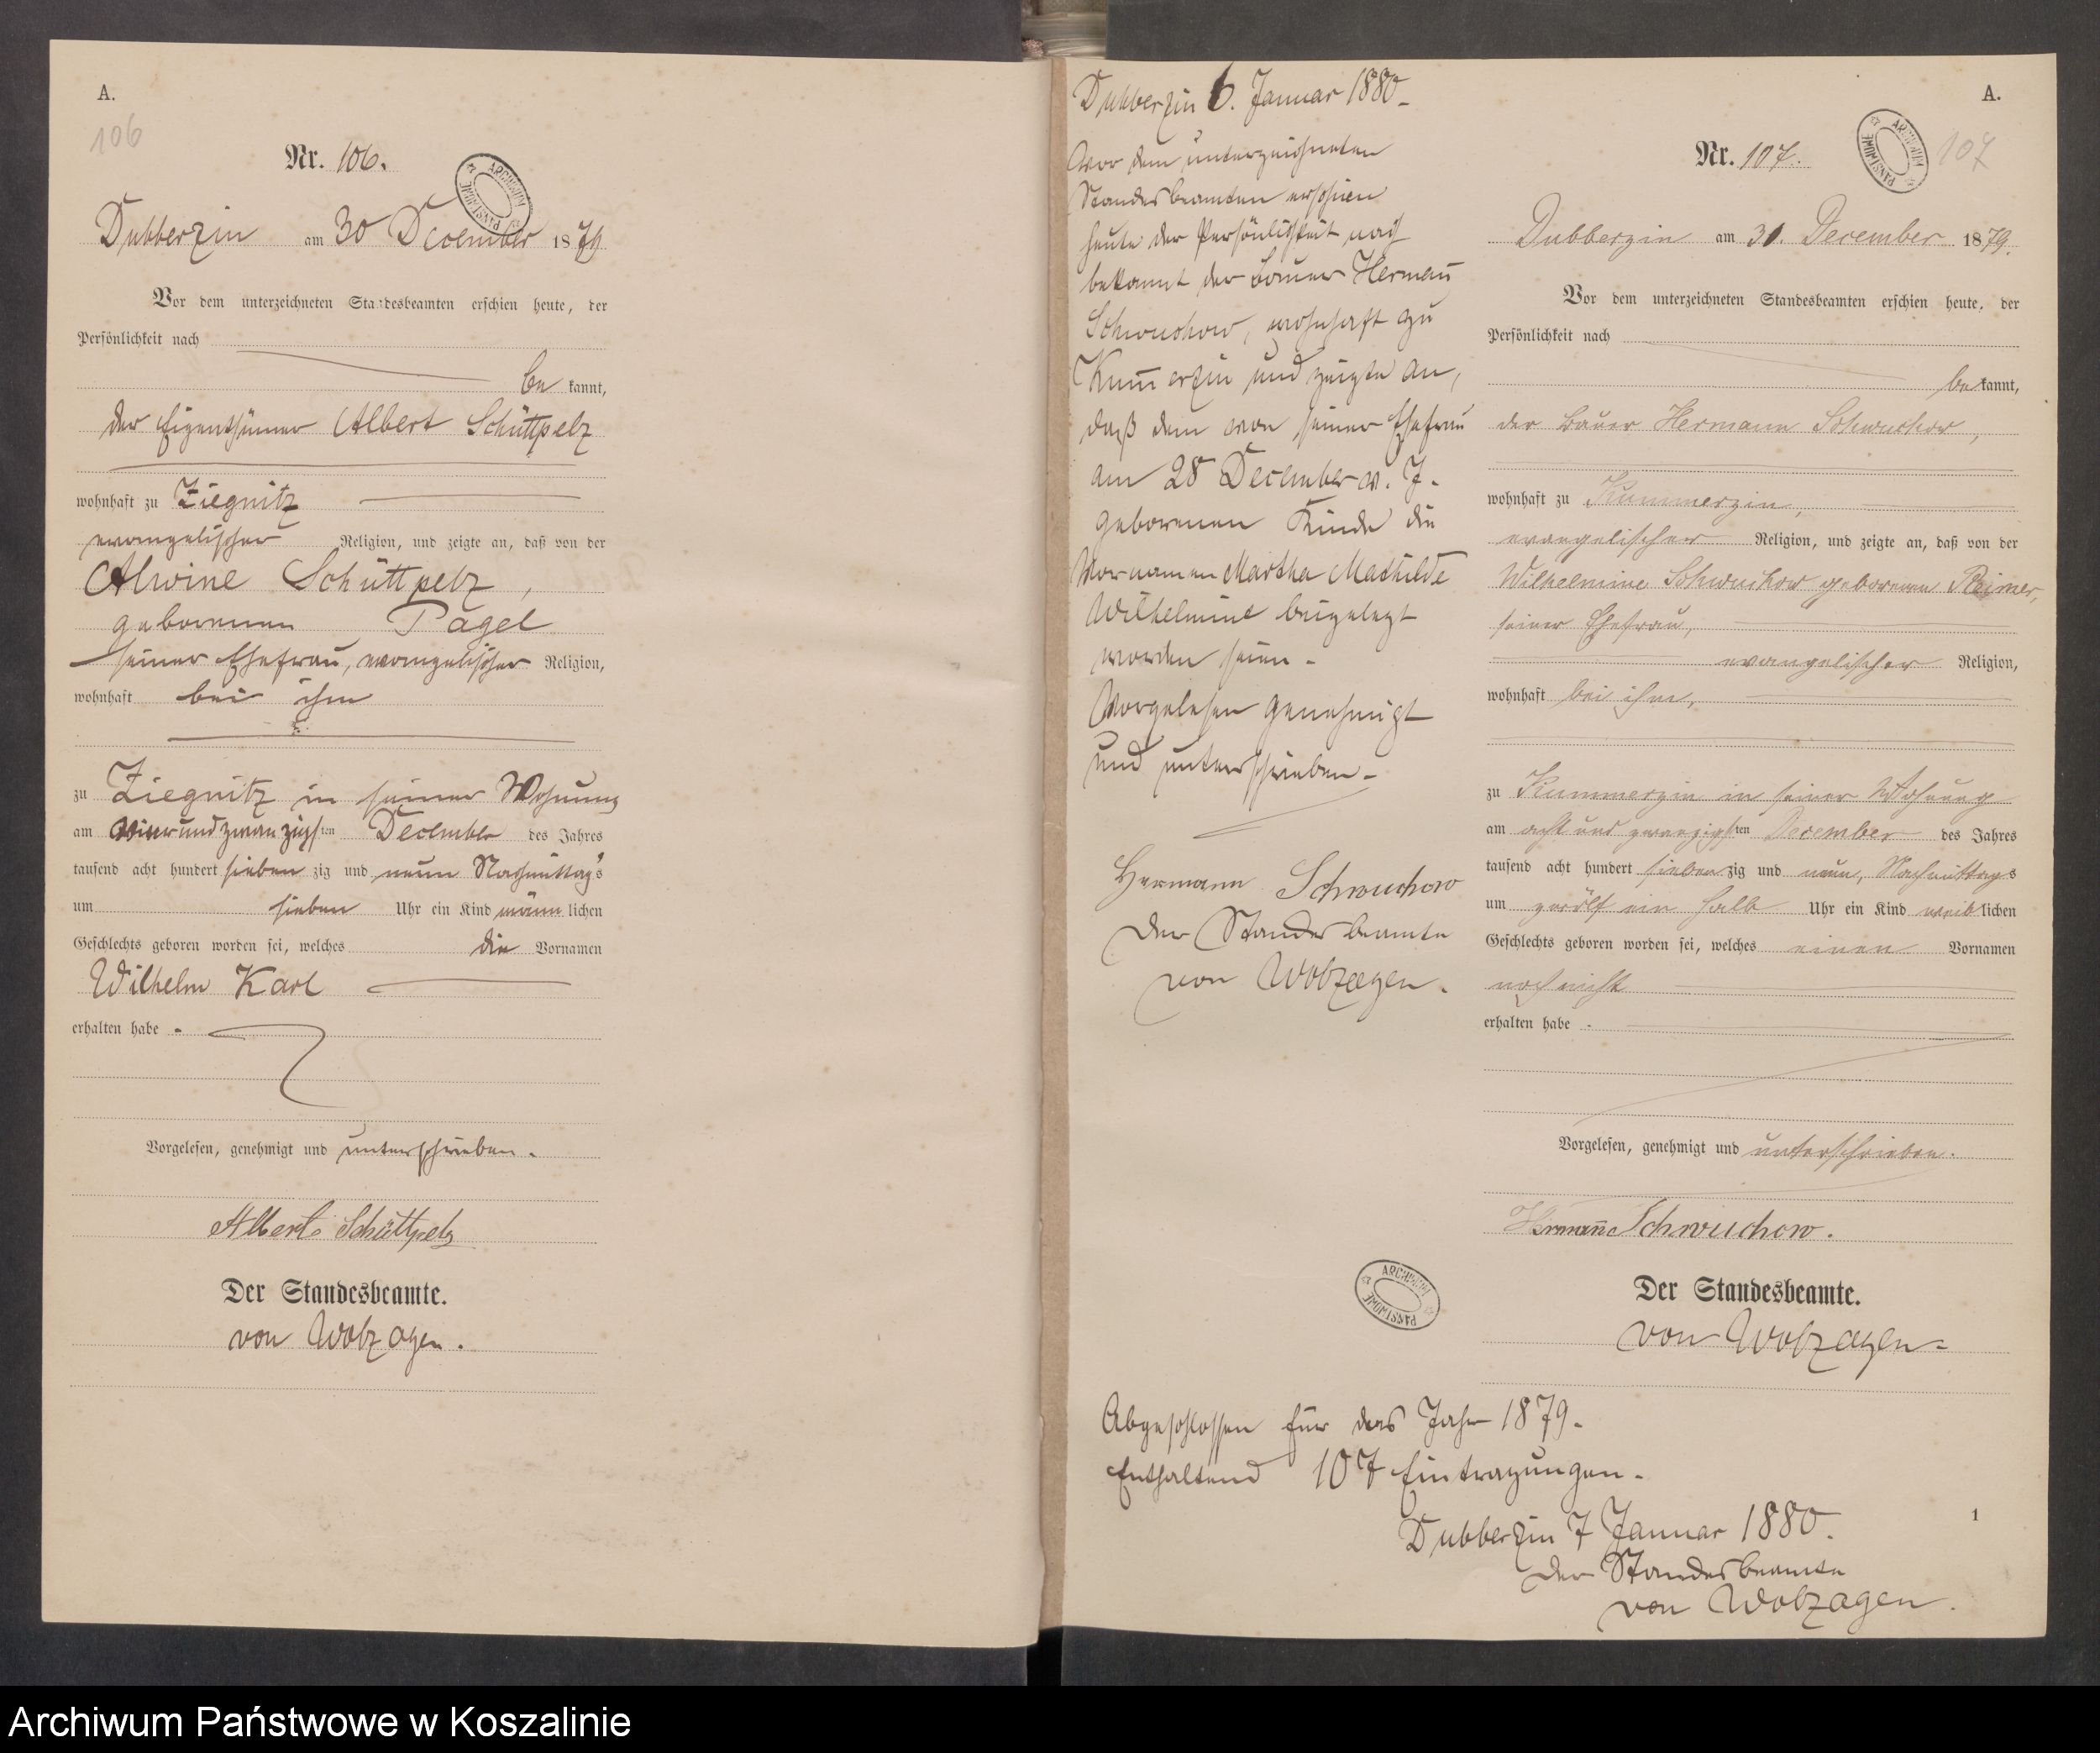 A.
106
Nr. 106.
ARCHIWUM PAŃSTWOWE
Dubberzin am 30 December 1879
Vor dem unterzeichneten Standesbeamten erschien heute, der
Persönlichkeit nach
be kannt,
der Eigenthümer Albert Schüttpelz
wohnhaft zu Ziegnitz
evangelischer Religion, und zeigte an, daß von der
Alwine Schüttpelz,
geborenen Pagel
seiner Ehefrau, evangelischer Religion,
wohnhaft bei ihm
zu Ziegnitz in seiner Wohnung
am vierundzwanzigsten December des Jahres
tausend acht hundert siebenzig und neun Nachmittags
um sieben Uhr ein Kind männlichen
Geschlechts geboren worden sei, welches die Vornamen
Wilhelm Karl
erhalten habe.
Vorgelesen, genehmigt und unterschrieben.
Albert Schüttpelz
Der Standesbeamte.
von Wobzagen.
Dubberzin 6. Januar 1880.
vor dem unterzeichneten
Standesbeamten erschien
heute der Persönlichkeit nach
bekannt der Bauer Herman̄
Schwuchow, wohnhaft zu
Kum̄erzin und zeigte an,
daß dem von seiner Ehefrau
am 28 December v. J.
geborenen Kinde die
Vornamen Martha Mathilde
Wilhelmine beigelegt
worden seien.
Vorgelesen genehmigt
und unterschrieben.
Hermann Schwuchow
Der Standesbeamte
von Wobzagen.
A.
107
Nr. 107.
ARCHIWUM PAŃSTWOWE
Dubberzin am 31. December 1879.
Vor dem unterzeichneten Standesbeamten erschien heute, der
Persönlichkeit nach
bekannt,
der Bauer Hermann Schwuchow,
wohnhaft zu Kummerzin,
evangelischer Religion, und zeigte an, daß von der
Wilhelmine Schwuchow geborenen Reimer,
seiner Ehefrau,
evangelischer Religion,
wohnhaft bei ihm,
zu Kummerzin in seiner Wohnung
am acht und zwanzigsten December des Jahres
tausend acht hundert siebenzig und neun, Nachmittags
um zwölf ein halb Uhr ein Kind weiblichen
Geschlechts geboren worden sei, welches einen Vornamen
noch nicht
erhalten habe.
Vorgelesen, genehmigt und unterschrieben.
Herman̄ Schwuchow.
ARCHIWUM PAŃSTWOWE
Der Standesbeamte.
von Wobzagen.
Abgeschlossen für das Jahr 1879.
Enthaltend 107 Eintragungen.
Dubberzin 7 Januar 1880.
Der Standesbeamte
von Wobzagen.
1
Archiwum Państwowe w Koszalinie